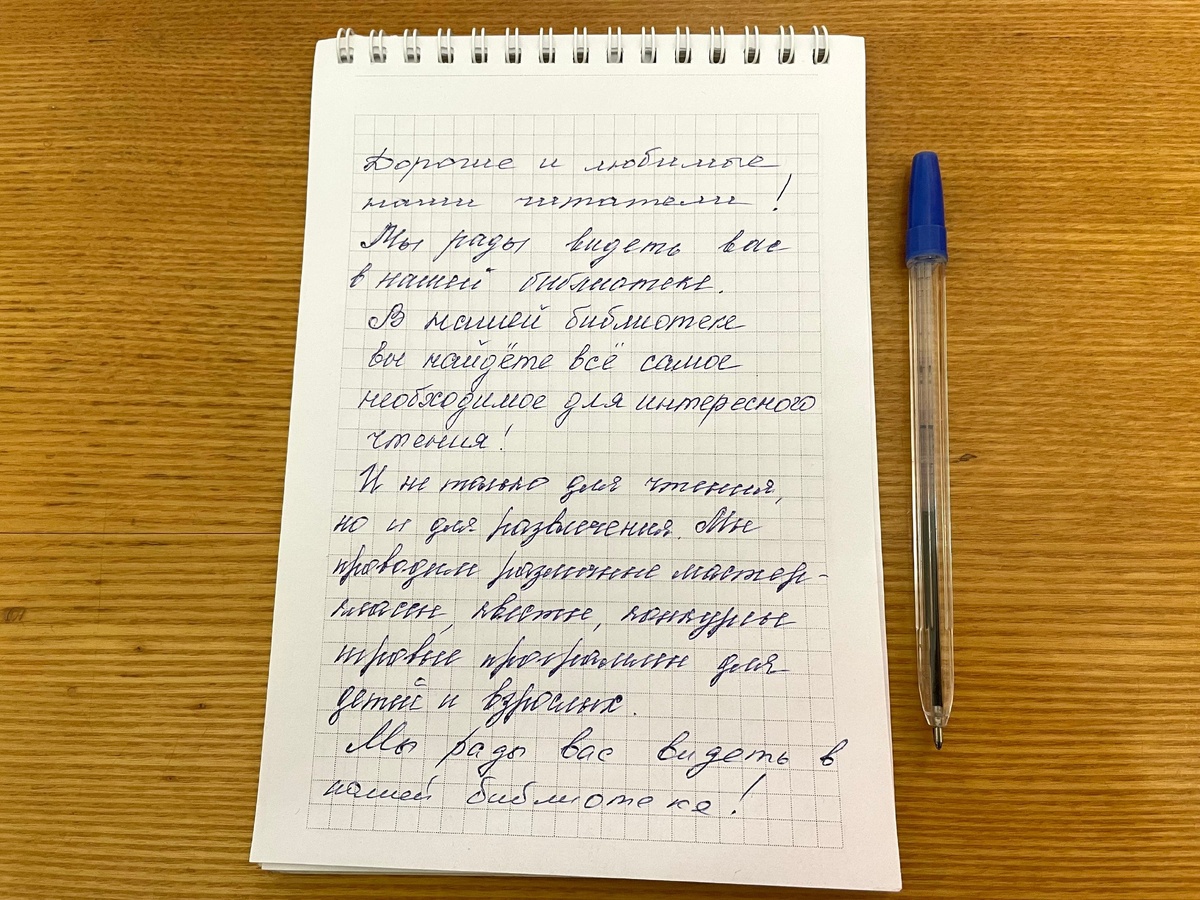 Дорогие и любимые
наши читатели!
Мы рады видеть вас
в нашей библиотеке.
В нашей библиотеке
вы найдёте всё самое
необходимое для интересного
чтения!
И не только для чтения,
но и для развлечения. Мы
проводим различные мастер-
классы, квесты, конкурсы
игровые программы для
детей и взрослых.
Мы рады вас видеть в
нашей библиотеке!